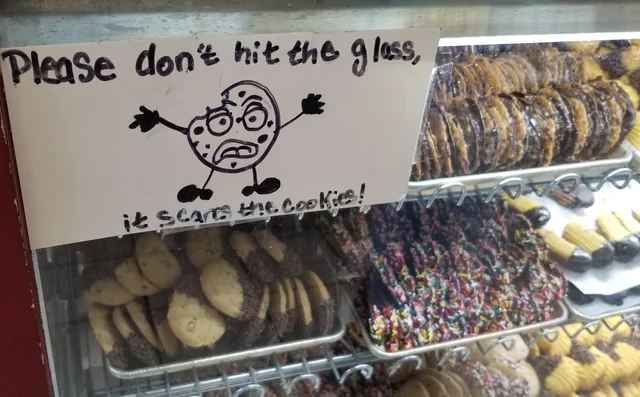 Please don't hit the glass,
it scares the cookies!